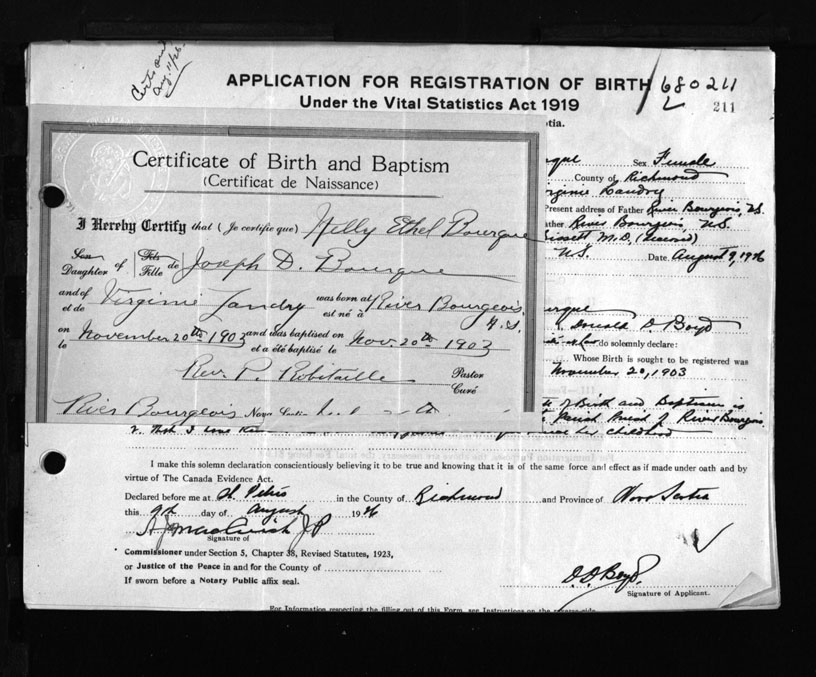 Certs sent
Aug. 11/26
APPLICATION FOR REGISTRATION OF BIRTH
Under the Vital Statistics Act 1919
680211
211
tia.
rque Sex Female
County of Richmond
irginie Landry
Present address of Father River Bourgeois, N.S.
ather River Bourgeois, N.S.
issett M.D. (deceased)
N.S. Date August 9, 1926
rque
Donald D. Boyd
do solemnly declare:
Whose Birth is sought to be registered was
November 20, 1903
of Birth and Baptism is
Parish of River Bourgeois
childhood
Certificate of Birth and Baptism
(Certificat de Naissance)
I Hereby Certify that (Je certifie que) Hilly Ethel Bourque
Son
Daughter of Fils
Fille de Joseph D. Bourque
and of
et de Virginie Landry was born at
est né à River Bourgeois, N.S.
on
le November 20th 1903 and was baptised on
et a été baptisé le Nov. 20th 1903
Rev. P. Robitaille Pastor
Curé
River Bourgeois Nova Scotia
2. That I
I make this solemn declaration conscientiously believing it to be true and knowing that it is of the same force and effect as if made under oath and by
virtue of The Canada Evidence Act.
Declared before me at St. Peters in the County of Richmond and Province of Nova Scotia
this 9th day of August 1926
A J MacCuish J P
Signature of
Commissioner under Section 5, Chapter 38, Revised Statutes, 1923,
or Justice of the Peace in and for the County of
If sworn before a Notary Public affix seal.
D. D Boyd.
Signature of Applicant.
For Information respecting the filling out of this Form, see Instructions on the reverse side.